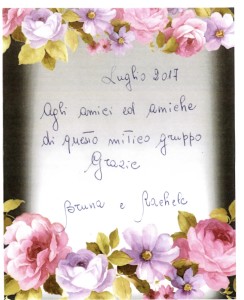 Luglio 2017
Agli amici ed amiche
di questo mitico gruppo
Grazie
Bruna e Rachele